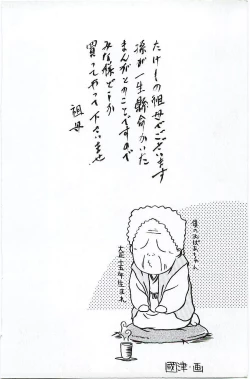 たけしの祖母でございます
孫が一生懸命かいた
まんがとのことですので
みな様どうか
買ってやって下さいませ
祖母
僕のおばあちゃん
大正十五年生まれ
國津・画